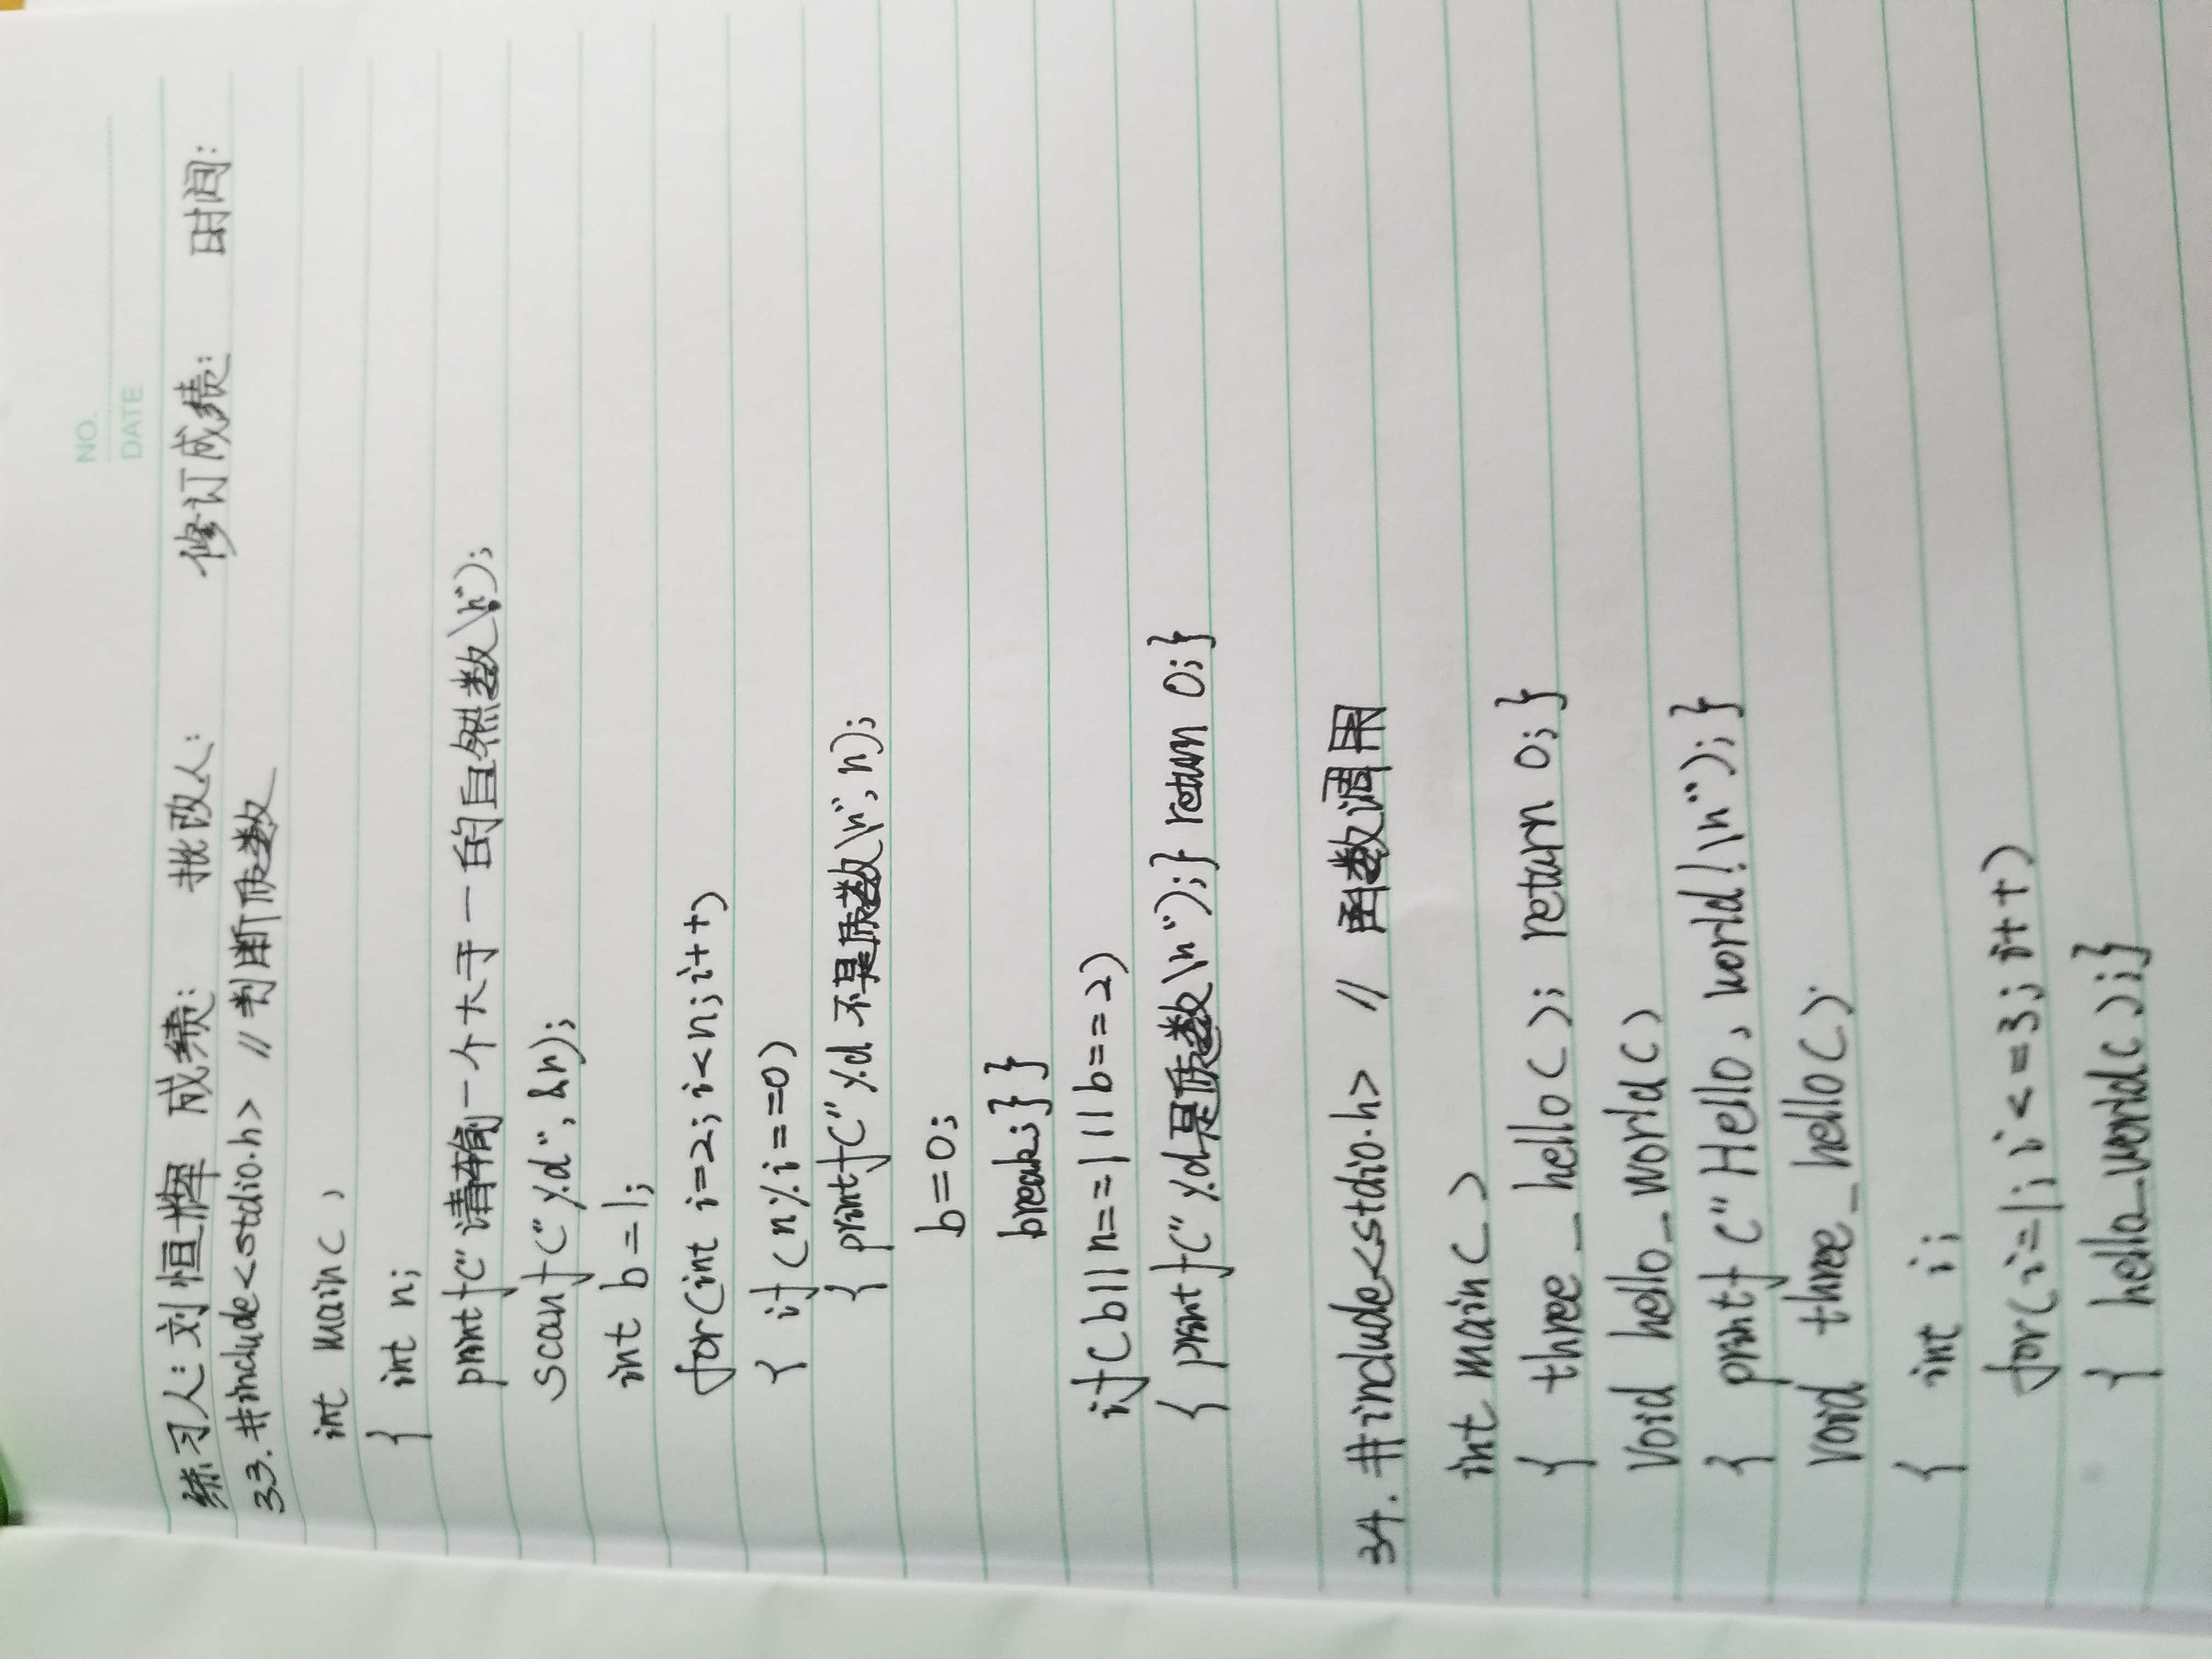 NO.
DATE
练习人: 刘恒辉 成绩: 批改人: 修订成绩: 时间:
33. #include<stdio.h> // 判断质数
int main( )
{ int n;
printf("请输一个大于一的自然数\n");
scanf("%d", &n);
int b=1;
for(int i=2; i<n; i++)
{ if(n%i==0)
{ printf("%d 不是质数\n", n);
b=0;
break;}}
if(b||n==1||b==2)
{ printf("%d是质数\n");} return 0;}
34. #include<stdio.h> // 函数调用
int main( )
{ three_hello( ); return 0;}
void hello_world( )
{ printf("Hello, world!\n");}
void three_hello( )
{ int i;
for(i=1; i<=3; i++)
{ hello_world( );}